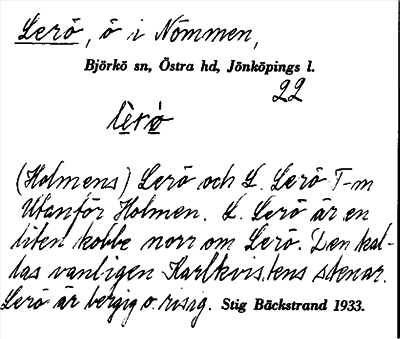 Lerö, ö i Nömmen,
Björkö sn, Östra hd, Jönköpings l.
22
lerö
(Holmens) Lerö och L. Lerö T-m
Utanför Holmen. L. Lerö är en
liten kobbe norr om Lerö. Den kal-
las vanligen Karlkvistens stenar.
Lerö är bergig o. risig. Stig Bäckstrand 1933.